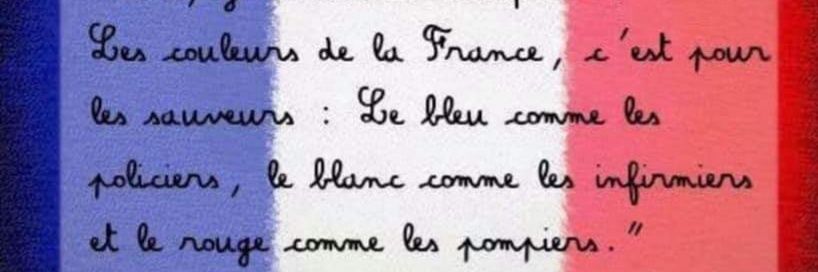 Les couleurs de la France, c'est pour
les sauveurs : Le bleu comme les
policiers, le blanc comme les infirmiers
et le rouge comme les pompiers."